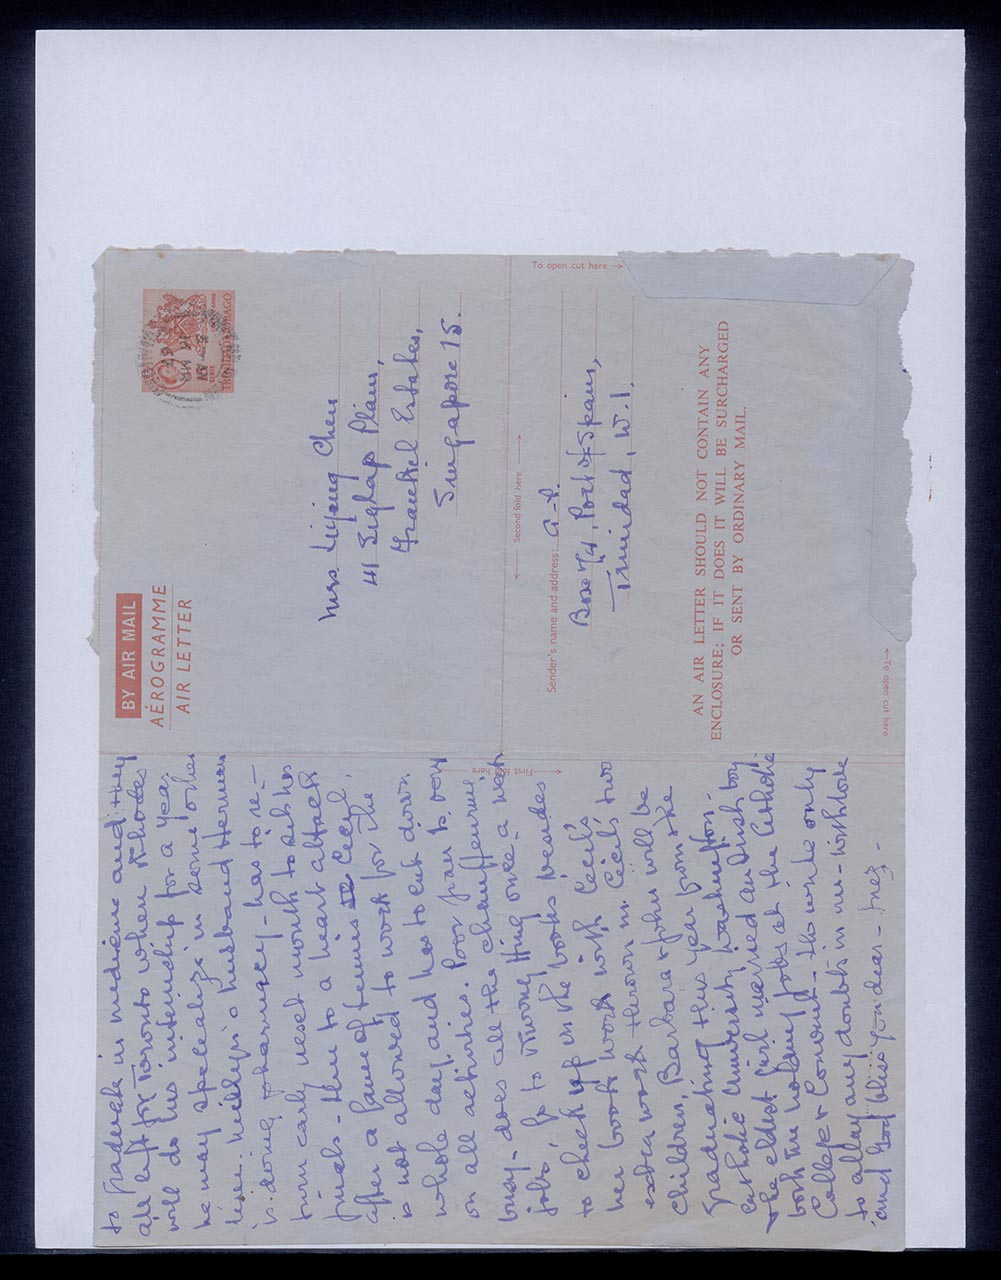 BY AIR MAIL
AÉROGRAMME
AIR LETTER
TRINIDAD & TOBAGO
Miss Lijing Chen
41 Siglap Plain,
Frankel Estates,
Singapore 15.
← Second fold here →
To open cut here →
Sender's name and address:
Box 74, Port of Spain,
Trinidad, W.I.
AN AIR LETTER SHOULD NOT CONTAIN ANY
ENCLOSURE; IF IT DOES IT WILL BE SURCHARGED
OR SENT BY ORDINARY MAIL.
→ To open cut here
First fold here
to graduate in medicine and they
all left for Toronto when Rhodes
will do his internship for a year
he may specialize in some other
line. Milly's husband Herman
is doing pharmacy - has to re-
turn early next month to sit his
finals - due to a heart attack
after a game of tennis Cecil
is not allowed to work for the
whole day and has to cut down
on all activities. Poor fran is very
busy - does all the chauffeuring
jobs, go to Hing once a week
to check up on the books besides
her book work with Cecil's
extra work thrown in. Cecil's two
children, Barbara & John will be
graduating this year from the
Catholic University, Washington.
the eldest girl married an Irish boy
both are holding jobs at the Catholic
College & Convent - the work only
to allay any doubts in
and God bless you dear - Inez -